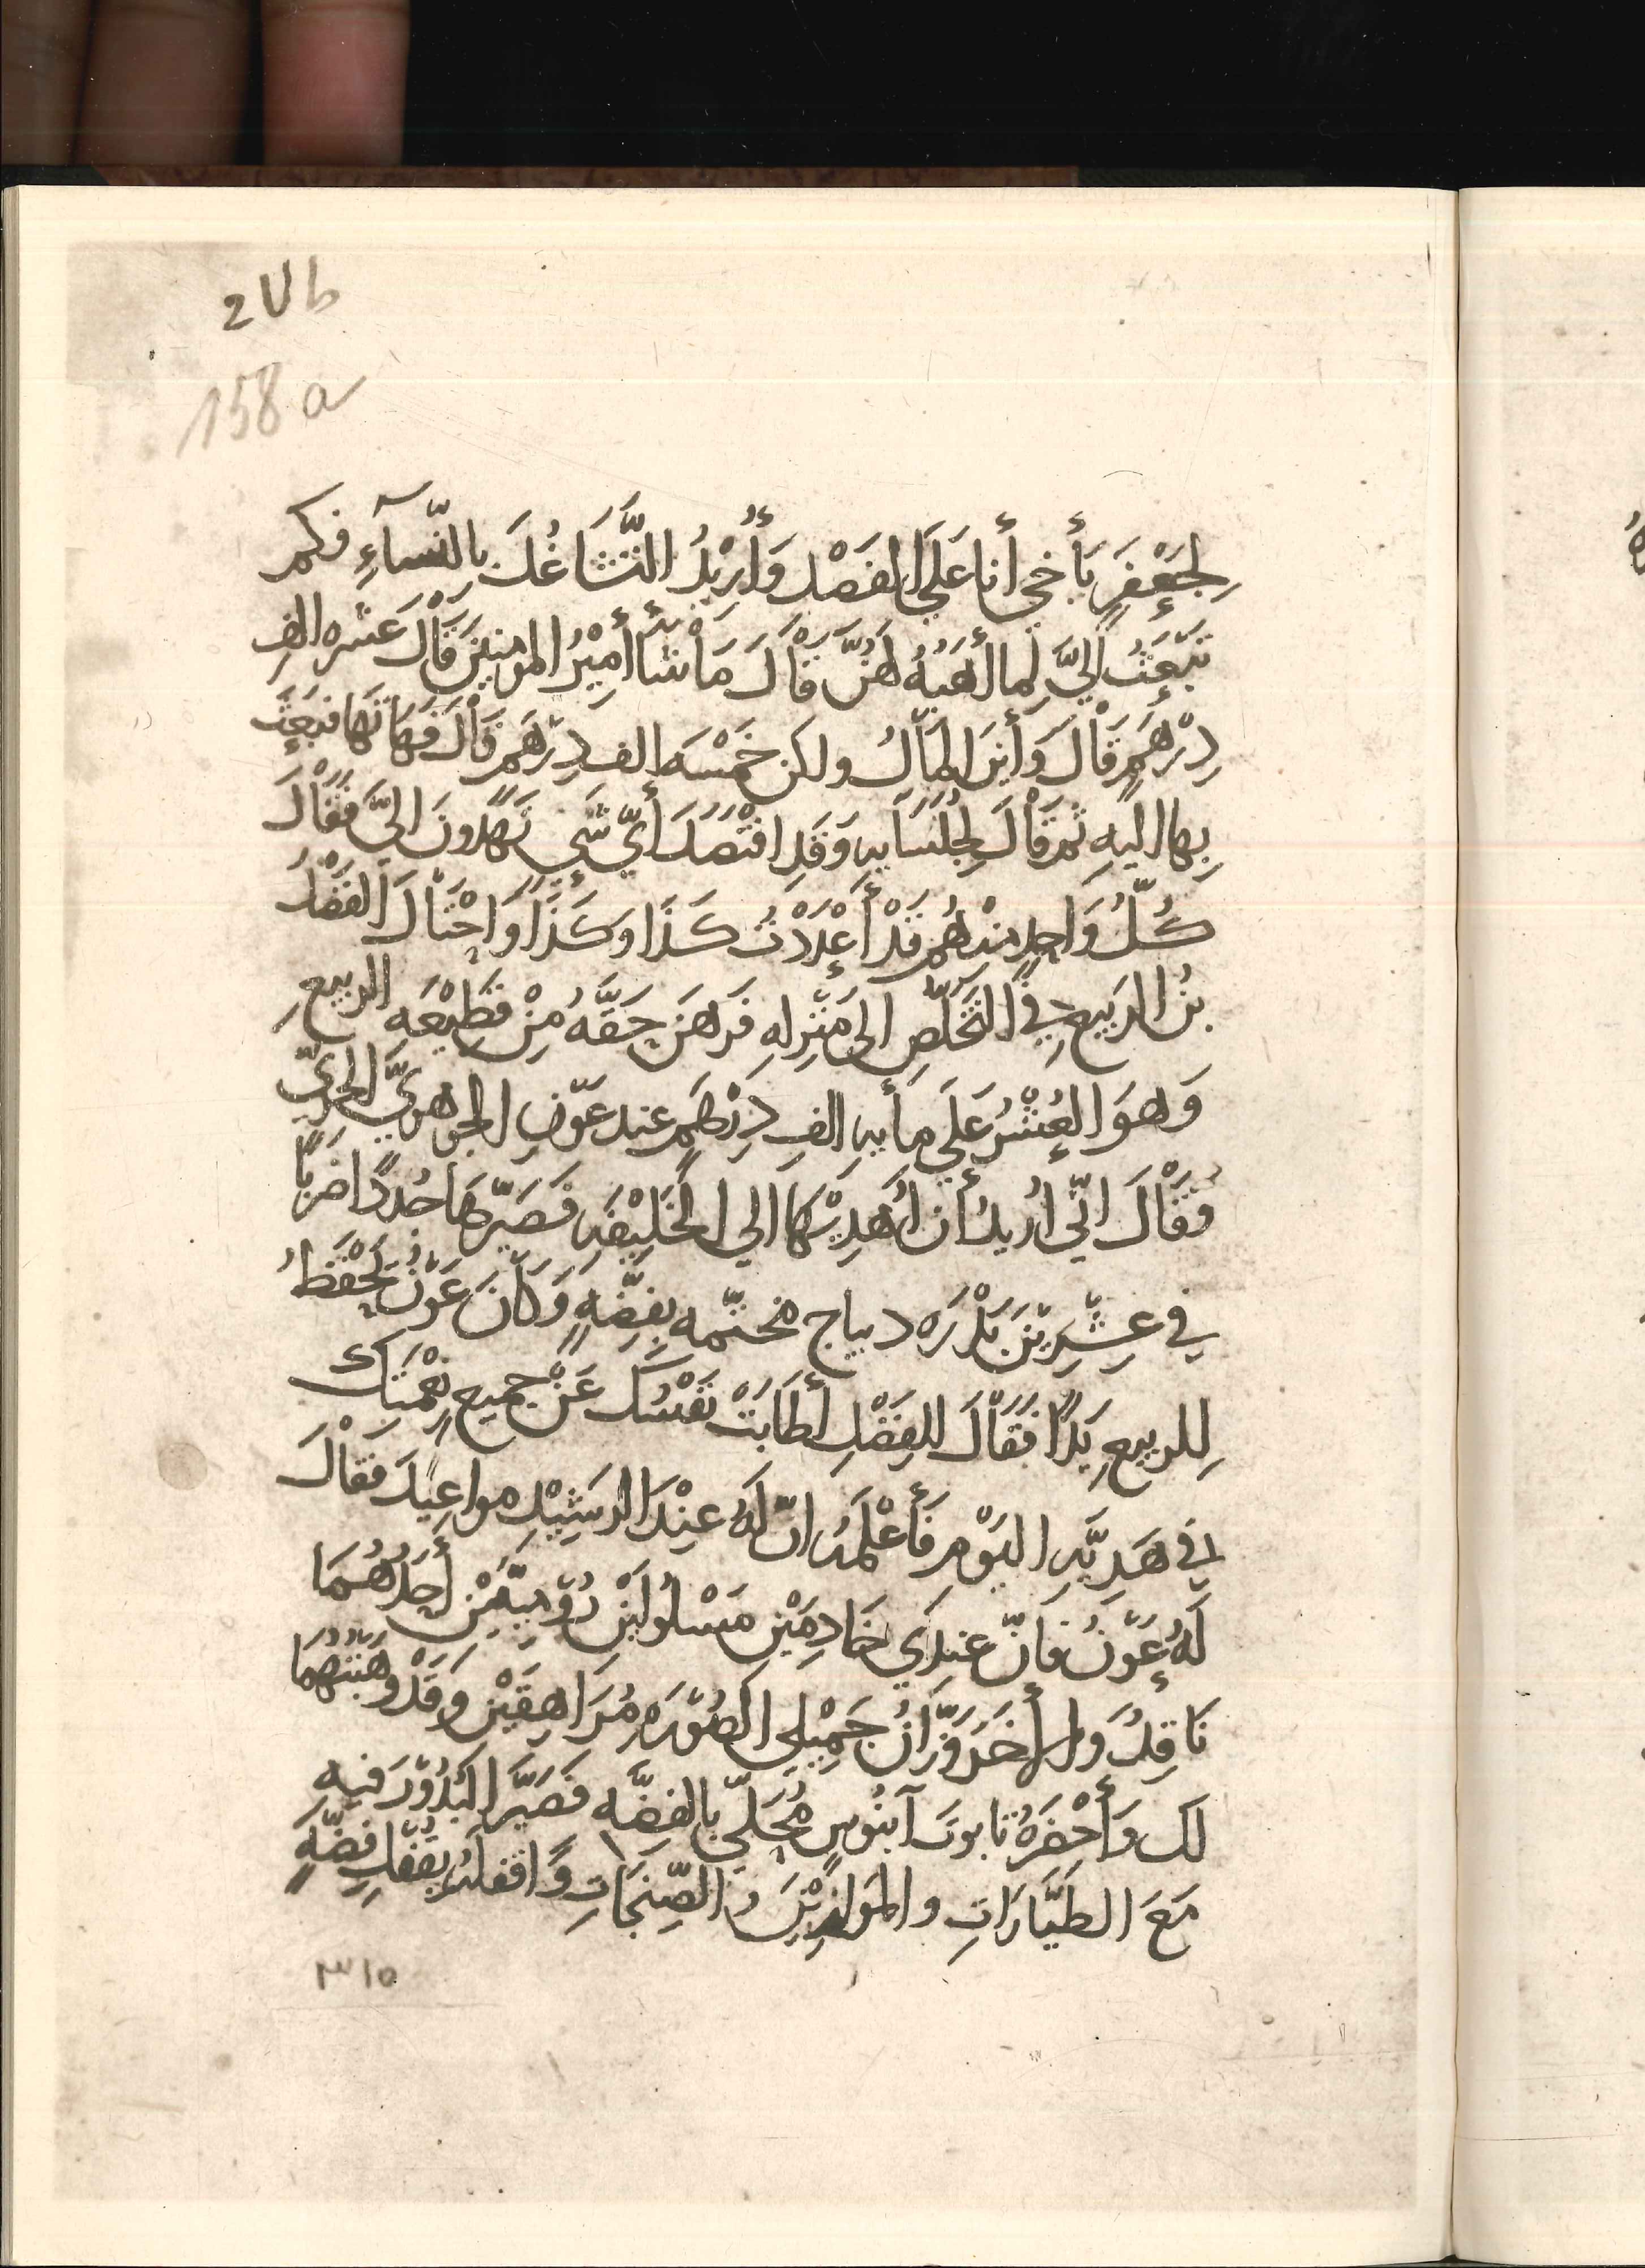 2Ub
158 a
لِجَعْفَرٍ يَأخي أنا عَلَي الفَصْدِ وَأُرِيْدُ التَّشَاغُلَ بالنّسآءِ فكم
تَبعَثُ اليَّ لِما أهَبُهُ لهُنَّ قَالَ مَا شَأ أمِيْرُ المومنِينَ قَالَ عَشره الفِ
دِرْهَمٍ قَالَ وَأينَ المَالُ ولكن خَمْسَه الف دِرْهَم قَالَ فَهَاتهَا فبَعَثَ
بِهاالَيهِ ثم قَالَ لِجُلَسَايهِ وَقَدِ افْتَصَدَ أيّ شَي تُهدُونَ اليَّ فَقَالَ
كُلُّ وَاحِدٍ مِنهُم قَدْ أعْدَدْتُ كَذَا وكَذَا وَاحْتَالَ الفَضْل
بنُ الرَبيعِ فِي التَخَلّصِ الى مَنْزِلهِ فَرهَنَ حَقَّهُ مِنْ قَطِيْعَهِ الربيعِ
وَهوَ العُشْرُ عَلَي مأيهِ الفِ دِرْهَمٍ عند عَوْنِ الجوهريّ الحرّيّ
وَقَالَ انّي أُريدُ أن أُهْدِيْهَا الي الخَلِيْفَهِ فَصَيّرهَا جُدداً ضَرباً
في عِشْرِيْنَ بَدْرَه ديباج مختّمه بِفِضَّهٍ وَكَانَ عَوْنُ يَحْفَظُ
لِلربيعِ يَداً فَقَالَ للفَضْلِ أطَابَتْ نَفْسُكَ عَنْ جميعِ نِعْمَتِكَ
في هَدِيَّهِ اليَوْمِ فَأعْلَمَهُ انّ لَهُ عِنْدَ الرَشِيْدِ مواعِيدَ فَقَالَ
لَهُ عَوْنُ فانّ عندِي خَادِمَيْنِ مَسْلُولَيْنِ رُوْمِيّيْنِ أحَدُهُمَا
نَاقِدُ وَالأخَرُ وَزَّانُ جَمِيْلي الصُوْرَهِ مُرَاهِقَيْنِ وَقَدْ وَهَبْتُهمَا
لَكَ وَأحْضَرهُ تابوتَ آبنُوسٍ مُحَلّي بالفضَّه فَصَيَّرَ البُدُوْرَ فيهِ
مَعَ الطَيَّارَاتِ والمَوَازِيْنَ والصّنجَاتِ وَاقفلهُ بقُفْلِ فضَّهٍ
٣١٥